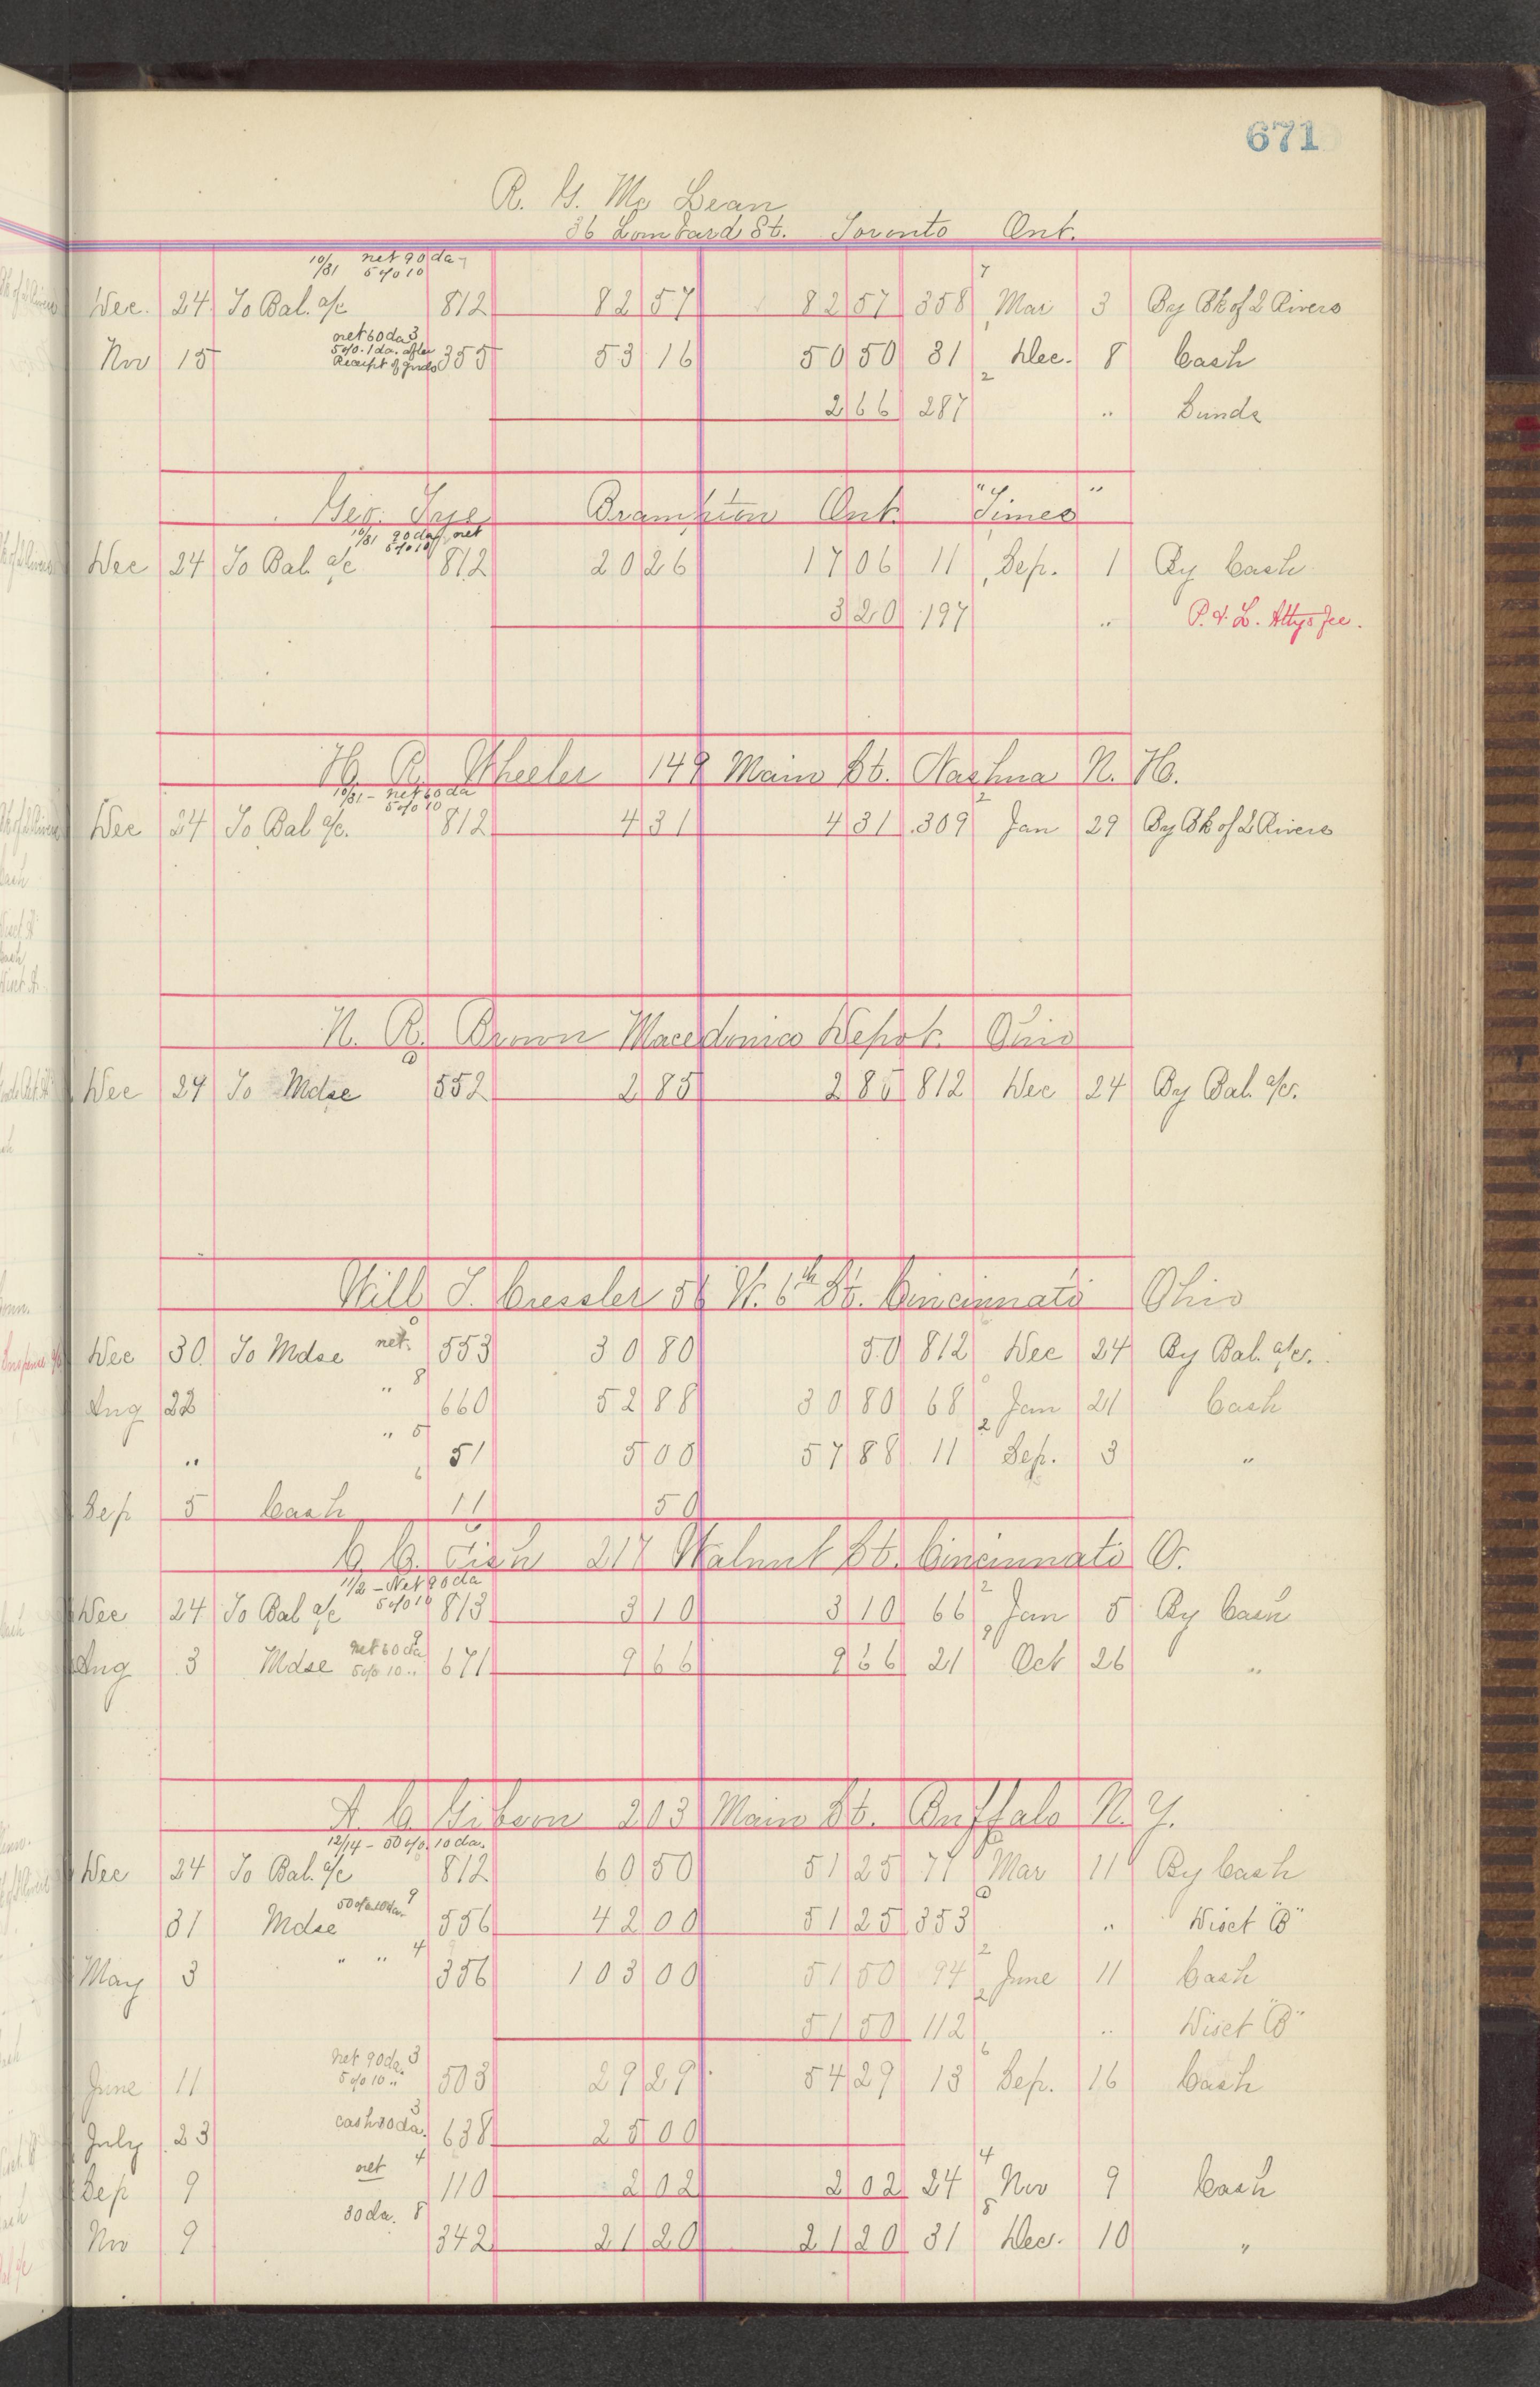 671
R. G. Mc Lean
36 Lombard St. Toronto Ont.
10/31 net 90 da
5 o/o 10 7
Dec. 24 To Bal. a/c 812 82 57 82 57 358 Mar 3 By Bk of 2 Rivers
net 60 da 3
5 o/o. 1 da. after
Receipt of goods
Nov 15 355 53 16 50 50 31 Dec. 8 Cash
2
2 66 287 " Sunds
Geo. Tye Brampton Ont. "Times"
10/31 90 da net
5 o/o 10
Dec 24 To Bal. a/c 812 20 26 17 06 11 Sep. 1 By Cash
3 20 197 " P. & L. Attys fee.
H. R. Wheeler 149 Main St. Nashua N. H.
10/31 - net 60 da
5 o/o 10 2
Dec 24 To Bal a/c. 812 4 31 4 31 309 Jan 29 By Bk of 2 Rivers
N. R. Brown Macedonia Depot. Ohio
Dec 24 To Mdse 552 2 85 2 85 812 Dec 24 By Bal. a/c.
Will J. Cressler 56 W. 6th St. Cincinnati Ohio
Dec 30 To Mdse net. 553 30 80 50 812 Dec 24 By Bal. a/c.
" 8
Aug 22 660 52 88 30 80 68 Jan 21 Cash
" 5 2
" 51 5 00 57 88 11 Sep. 3 "
6
Sep 5 Cash 11 50
217 Walnut St. Cincinnati O.
11/2 - Net 90 da
5 o/o 10 2
Dec 24 To Bal a/c 813 3 10 3 10 66 Jan 5 By Cash
net 60 da 9
5 o/o 10 "
Aug 3 Mdse 671 9 66 9 66 21 Oct 26 "
A. C. Gibson 203 Main St. Buffalo N. Y.
12/14 - 50 o/o. 10 da.
Dec 24 To Bal. a/c 812 60 50 51 25 77 Mar 11 By Cash
50 o/o 10 da. 9
31 Mdse 556 42 00 51 25 353 " Disct "B"
" " 4 2
May 3 356 103 00 51 50 94 June 11 Cash
2
51 50 112 " Disct "B"
net 90 da. 3
5 o/o 10 " 6
June 11 503 29 29 54 29 13 Sep. 16 Cash
cash 30 da. 3
July 23 638 25 00
net 4 4
Sep 9 110 2 02 2 02 24 Nov 9 Cash
30 da. 8 8
Nov 9 342 21 20 21 20 31 Dec. 10 "